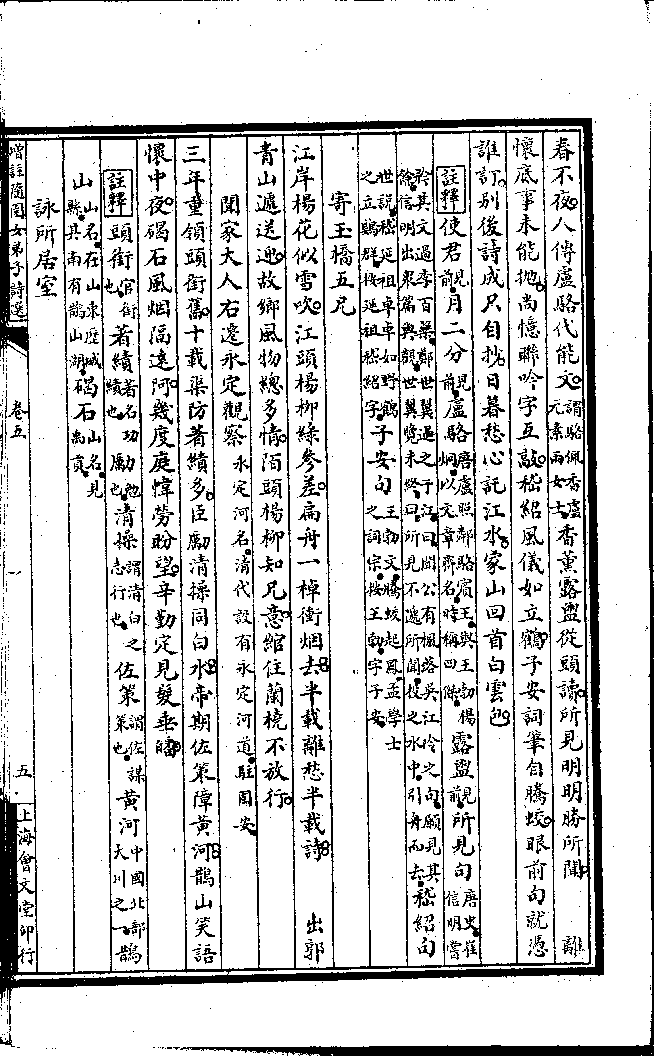 春不夜人傳盧駱代能文謂駱佩香盧元素兩女士香薰露盥從頭讀所見明明勝所聞　離
懷底事未能拋尚憶聯吟字互敲嵇紹風儀如立鶴子安詞筆自騰蛟眼前句就憑
誰訂别後詩成只自抄日暮愁心託江水家山回首白雲包
註釋使君見前月二分見前盧駱唐盧照鄰駱賓王與王勃楊炯以文章齊名時稱四傑露盥見前所見句唐史崔信明嘗
矜其文過李百藥鄭世翼遇之于江曰聞公有楓落吳江冷之句願見其餘信明出衆篇與觀世翼覽未終曰所見不逮所聞投之水中引舟而去嵇紹句
世説嵇延祖卓卓如野鶴之立鷄群按延祖嵇紹字子安句王勃文騰蛟起鳳孟學士之詞宗按王勃字子安
寄玉橋五兄
江岸楊花似雪吹江頭楊柳綠參差扁舟一棹衝烟去半載離愁半載詩　出郭
青山遞送迎故鄉風物總多情陌頭楊柳知兄意綰住蘭橈不放行
聞家大人右遷永定觀察永定河名清代設有永定河道駐固安
三年重領頭銜舊十載渠防著績多臣勵清操同白水帝期佐策障黄河鵲山笑語
懷中夜碣石風烟隔遠阿幾度庭幃勞盼望辛勤定見髮垂皤
註釋頭銜官銜也著績著名功績也勵勉也清操謂清白之志行也佐策謂佐謀策也黄河中國北部大川之一鵲
山山名在山東歷城縣其南有鵲山湖碣石山名見禹貢
詠所居室
增註隨園女弟子詩選
卷五
一
五
上海會文堂印行